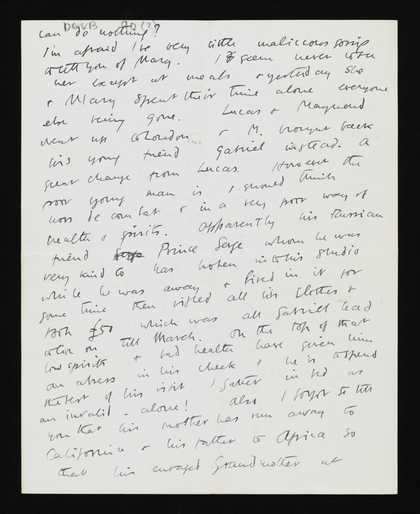 can do nothing?
I'm afraid I've very little malicious gossip
to tell you of Mary. I seem never to see
her except at meals & yesterday she
& Mary spent their time alone everyone
else being gone. Lucas & Raymond
went up to London & M. brought back
his young friend Gabriel instead. A
great change from Lucas. However the
poor young man is I should think
hors de combat & in a very poor way of
health & spirits. Apparently his Russian
friend Prince Serge whom he was
very kind to has broken into his studio
while he was away & lived in it for
some time then robbed all his clothes &
took £50 which was all Gabriel had
to live on till March. On the top of that
low spirits & bad health have given him
an abcess in his cheek & he is to spend
the rest of his visit I gather in bed as
an invalid - alone! Also I forgot to tell
you that his mother has run away to
California & his father to Africa so
that his enraged Grandmother